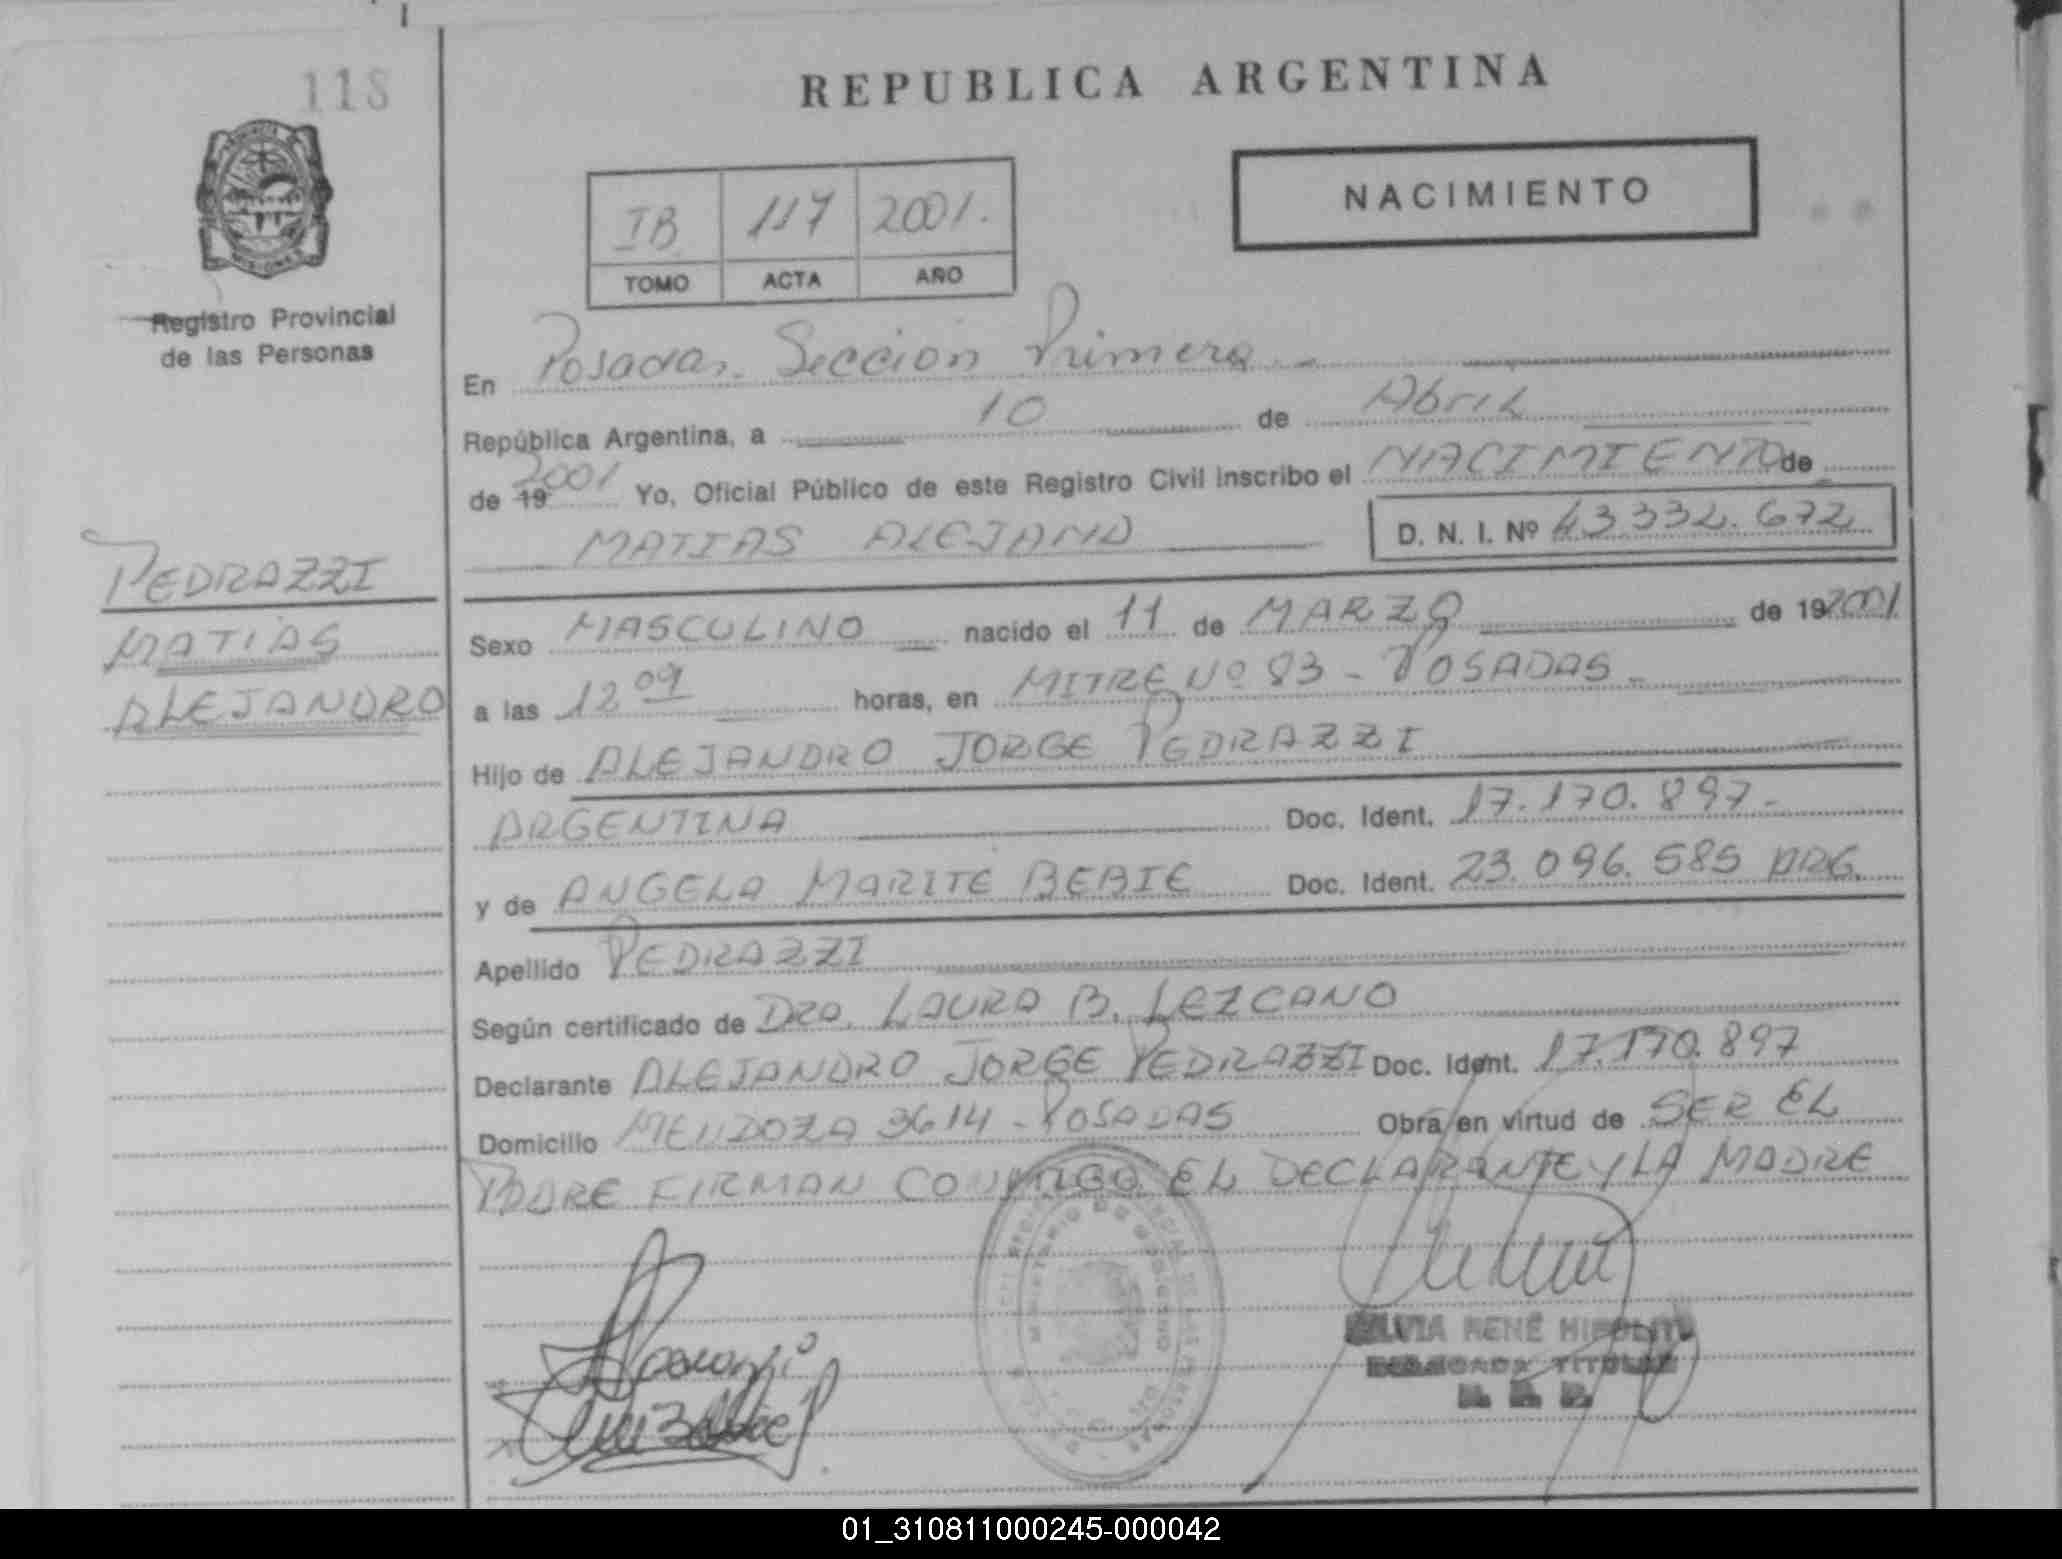 118
REPUBLICA ARGENTINA
NACIMIENTO
IB 117 2001.
TOMO ACTA AÑO
Registro Provincial
de las Personas
En Posadas. Sección Primera -
República Argentina, a 10 de Abril
de 19 2001 Yo, Oficial Público de este Registro Civil inscribo el NACIMIENTO de
MATIAS ALEJAND D. N. I. Nº 43.332.672
PEDRAZZI
MATIAS
ALEJANDRO
Sexo MASCULINO nacido el 11 de MARZO de 19 2001
a las 12 09 horas, en MITRE Nº 83 - POSADAS -
Hijo de ALEJANDRO JORGE PEDRAZZI
ARGENTINA Doc. Ident. 17.170.897-
y de ANGELA MARITE BEBIE Doc. Ident. 23.096.585 ARG.
Apellido PEDRAZZI
Según certificado de Dra. LAURA B. LEZCANO
Declarante ALEJANDRO JORGE PEDRAZZI Doc. Ident. 17.170.897
Domicilio MENDOZA 3614 - POSADAS Obra en virtud de SER EL
PADRE FIRMAN CONMIGO EL DECLARANTE Y LA MADRE
MINISTERIO DE GOBIERNO
SILVIA RENÉ HIPOLITO
DELEGADA TITULAR
01_310811000245-000042